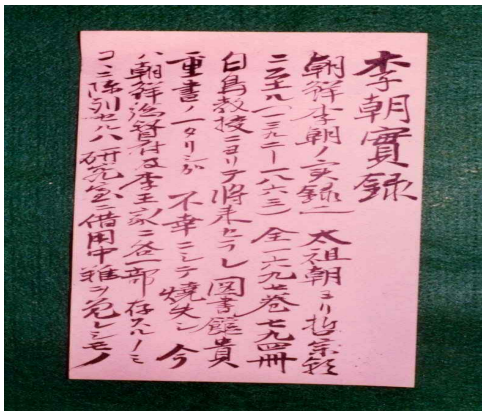 李朝實録
朝鮮李朝ノ実録ニ 太祖朝ヨリ哲宗朝
ニ至ル(一三九二―一八六三) 全一六九七巻七九四冊
白鳥教授ニヨリテ将来セラレ 図書館貴
重書ノ一タリシガ 不幸ニシテ焼失シ 今
ハ朝鮮総督府及李王家ニ各一部存スルノミ
コヽニ陳列セルハ 研究室ニ借用中難ヲ免レシモノ